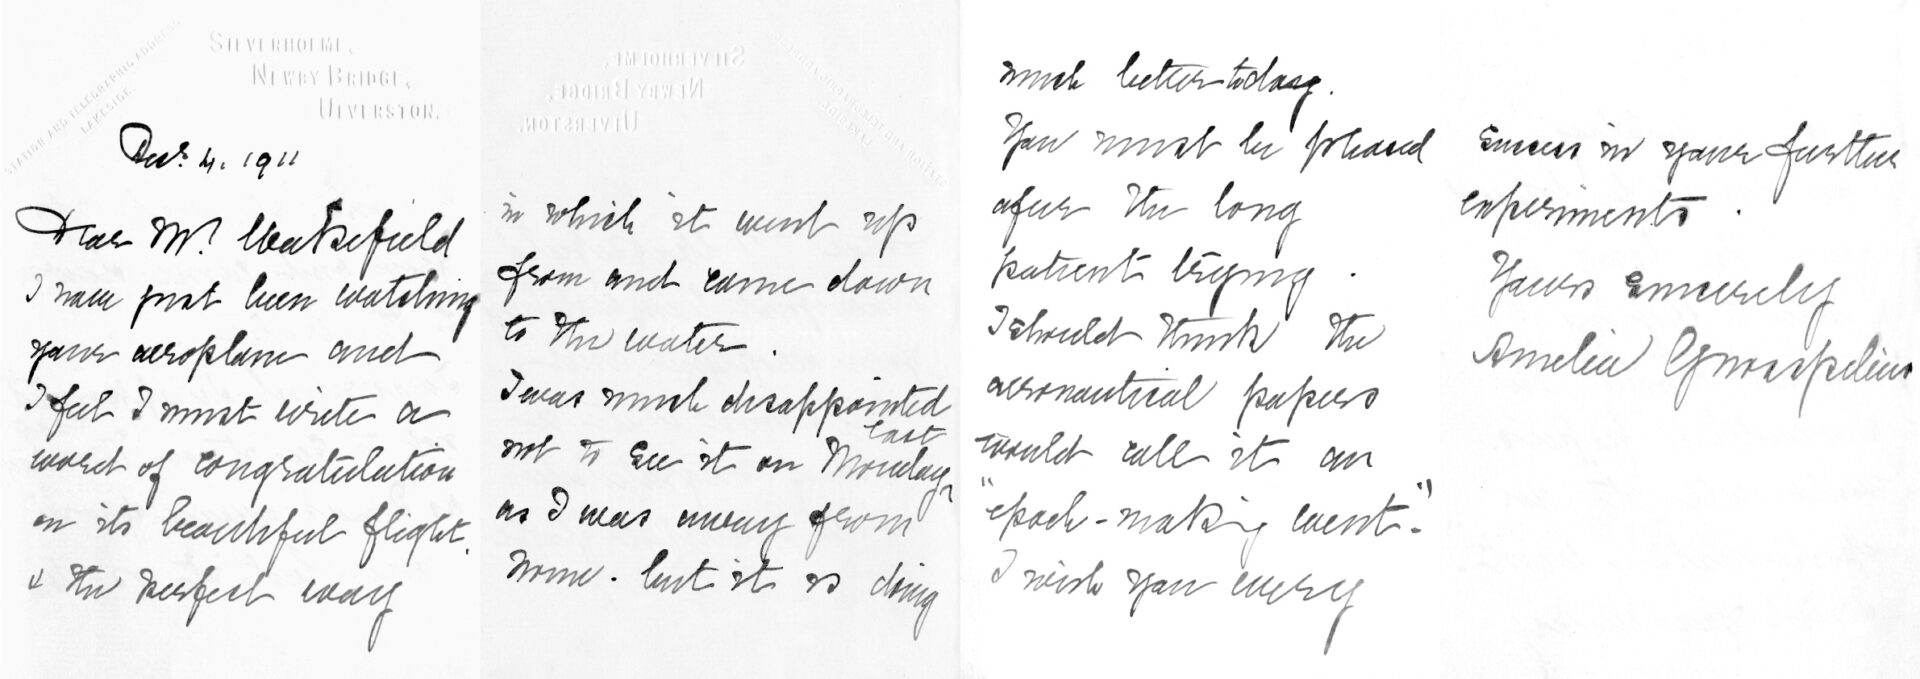 STATION AND TELEGRAPHIC ADDRESS
LAKESIDE.
SILVERHOLME,
NEWBY BRIDGE,
ULVERSTON.
Decr. 4. 1911
Dear Mr. Wakefield
I have just been watching
your aeroplane and
I feel I must write a
word of congratulation
on its beautiful flight.
& the perfect way
in which it went up
from and came down
to the water.
I was much disappointed
not to see it on last Monday,
as I was away from
home. but it is doing
much better today.
You must be pleased
after the long
patient trying.
I should think the
aeronautical papers
would call it an
"epoch-making event"-
I wish you every
success in your further
experiments.
Yours sincerely
Amelia Gnosspelius